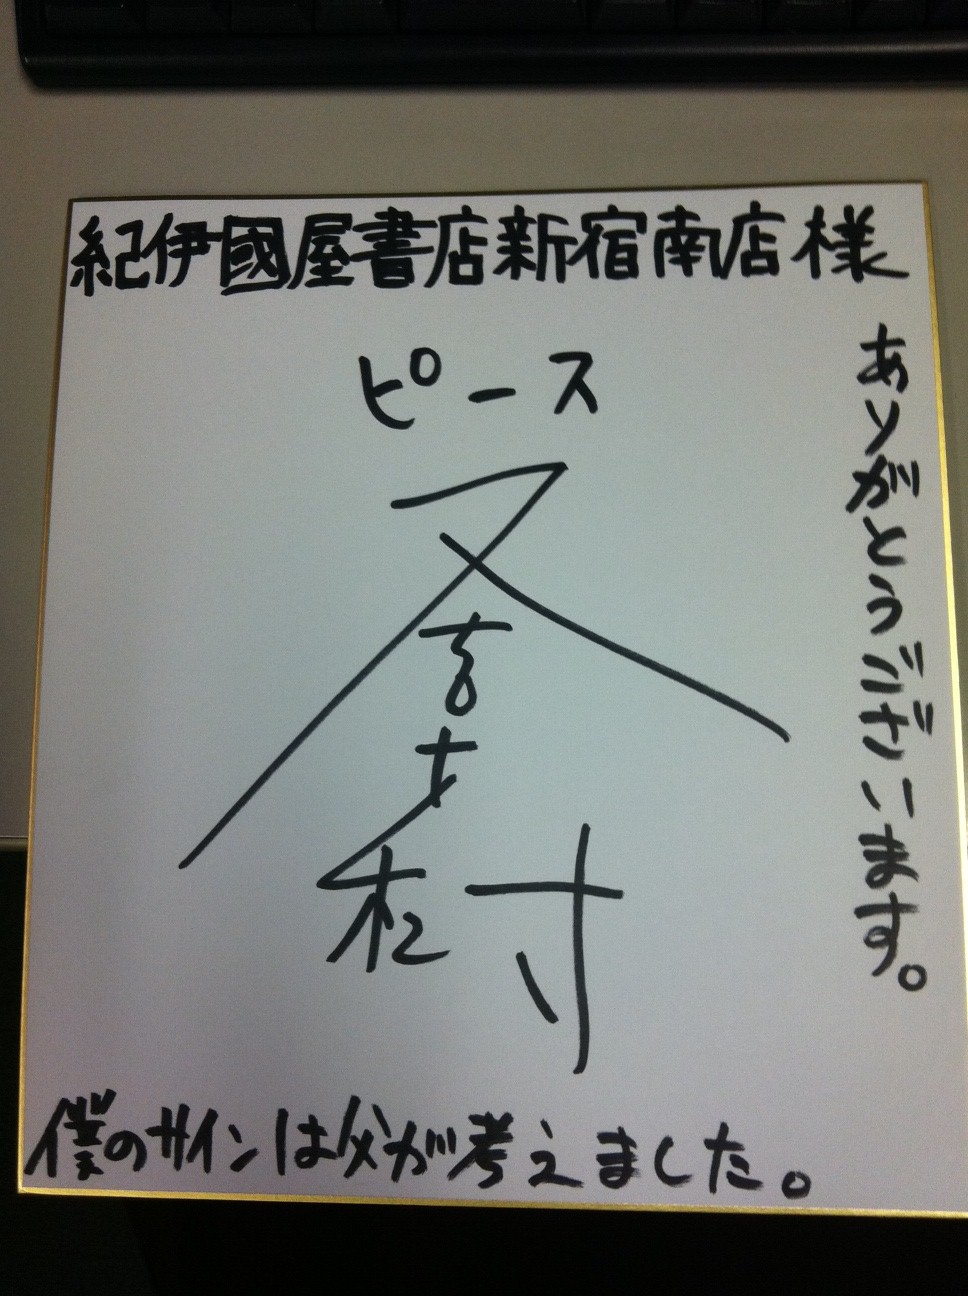 紀伊國屋書店新宿南店様
ありがとうございます。
ピース
又吉
僕のサインは父が考えました。